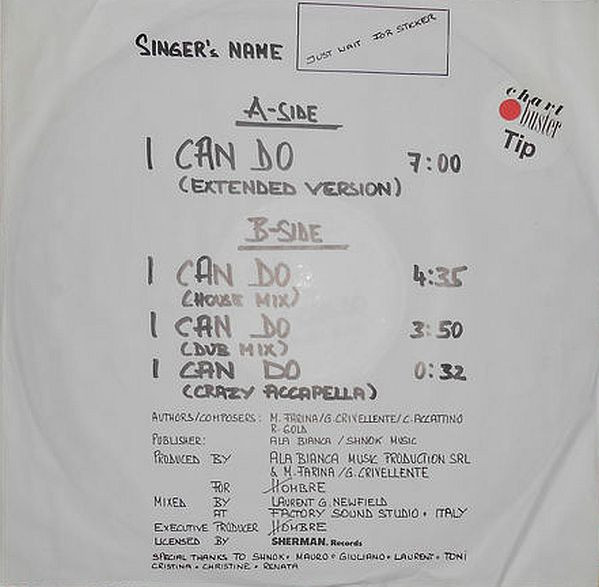 SINGER'S NAME
JUST WAIT FOR STICKER
chart
buster
Tip
A-SIDE
I CAN DO 7:00
(EXTENDED VERSION)
B-SIDE
I CAN DO 4:35
(HOUSE MIX)
I CAN DO 3:50
(DUB MIX)
I CAN DO 0:32
(CRAZY ACCAPELLA)
AUTHORS/COMPOSERS: M. FARINA/G. CRIVELLENTE/C. ACCATTINO
R. GOLD
PUBLISHER: ALA BIANCA / SHNOK MUSIC
PRODUCED BY ALA BIANCA MUSIC PRODUCTION SRL
& M. FARINA/G. CRIVELLENTE
FOR HOMBRE
MIXED BY LAURENT G. NEWFIELD
AT FACTORY SOUND STUDIO • ITALY
EXECUTIVE PRODUCER HOMBRE
LICENSED BY SHERMAN. Records
SPECIAL THANKS TO SHNOK • MAURO • GIULIANO • LAURENT • TONI
CRISTINA • CHRISTINE • RENATA